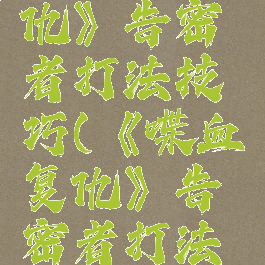 仇》告密
者打法技
巧(《喋血
复仇》告
密者打法